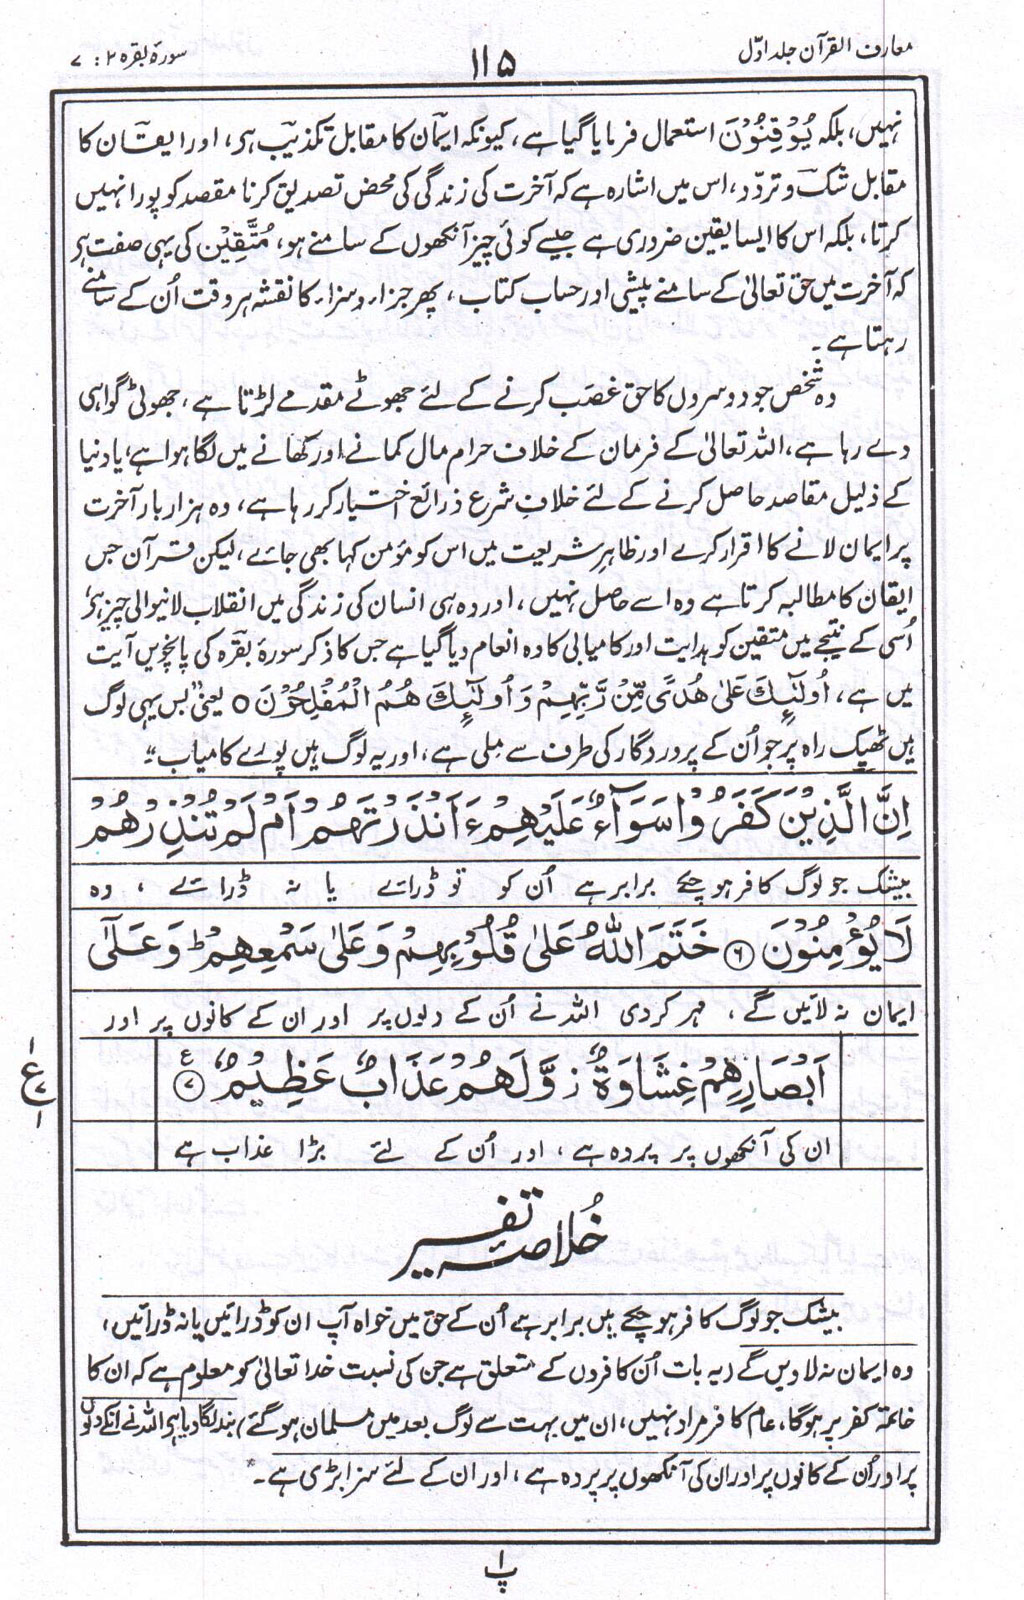 معارف القرآن جلد اوّل
۱۱۵
سورۂ بقرہ ۲ : ۷
نہیں، بلکہ یُوْقِنُوْنَ استعمال فرمایا گیا ہے، کیونکہ ایمان کا مقابل تکذیب ہی، اور ایقان کا
مقابل شک و تردّد، اس میں اشارہ ہے کہ آخرت کی زندگی کی محض تصدیق کرنا مقصد کو پورا نہیں
کرتا، بلکہ اس کا ایسا یقین ضروری ہے جیسے کوئی چیز آنکھوں کے سامنے ہو، مُتَّقِیْن کی یہی صفت ہی
کہ آخرت میں حق تعالیٰ کے سامنے پیشی اور حساب کتاب، پھر جزاء و سزاء کا نقشہ ہر وقت اُن کے سامنے
رہتا ہے۔
وہ شخص جو دوسروں کا حق غصب کرنے کے لئے جھوٹے مقدمے لڑتا ہے، جھوٹی گواہی
دے رہا ہے، اللہ تعالیٰ کے فرمان کے خلاف حرام مال کمانے اور کھانے میں لگا ہوا ہے، یا دنیا
کے ذلیل مقاصد حاصل کرنے کے لئے خلافِ شرع ذرائع اختیار کر رہا ہے، وہ ہزار بار آخرت
پر ایمان لانے کا اقرار کرے اور ظاہرِ شریعت میں اس کو مؤمن کہا بھی جائے، لیکن قرآن جس
ایقان کا مطالبہ کرتا ہے وہ اسے حاصل نہیں، اور وہ ہی انسان کی زندگی میں انقلاب لانیوالی چیز ہی،
اُسی کے نتیجے میں متقین کو ہدایت اور کامیابی کا وہ انعام دیا گیا ہے جس کا ذکر سورۂ بقرہ کی پانچویں آیت
میں ہے، اُولٰٓئِكَ عَلٰی هُدًی مِّنْ رَّبِّهِمْ وَ اُولٰٓئِكَ هُمُ الْمُفْلِحُوْنَ ○ یعنی "بس یہی لوگ
ہیں ٹھیک راہ پر جو اُن کے پروردگار کی طرف سے ملی ہے، اور یہ لوگ ہیں پورے کامیاب"۔
اِنَّ الَّذِیْنَ كَفَرُوْا سَوَآءٌ عَلَیْهِمْ ءَاَنْذَرْتَهُمْ اَمْ لَمْ تُنْذِرْهُمْ
بیشک جو لوگ کافر ہو چکے برابر ہے اُن کو تو ڈرائے یا نہ ڈرائے ، وہ
لَا یُؤْمِنُوْنَ ﴿۶﴾ خَتَمَ اللّٰهُ عَلٰی قُلُوْبِهِمْ وَ عَلٰی سَمْعِهِمْ ؕ وَ عَلٰۤی
ایمان نہ لائیں گے ، مہر کر دی اللہ نے اُن کے دلوں پر اور ان کے کانوں پر اور
اَبْصَارِهِمْ غِشَاوَةٌ ؗ وَّ لَهُمْ عَذَابٌ عَظِیْمٌ ﴿۷﴾ ع
۱
ع
۷
۱
ان کی آنکھوں پر پردہ ہے ، اور اُن کے لئے بڑا عذاب ہے
خُلاصۂ تفسیر
بیشک جو لوگ کافر ہو چکے ہیں برابر ہے اُن کے حق میں خواہ آپ ان کو ڈرائیں یا نہ ڈرائیں،
وہ ایمان نہ لاویں گے (یہ بات اُن کافروں کے متعلق ہے جن کی نسبت خدا تعالیٰ کو معلوم ہے کہ ان کا
خاتمہ کفر پر ہوگا، عام کافر مراد نہیں، ان میں بہت سے لوگ بعد میں مسلمان ہو گئے) بند لگا دیا ہی اللہ نے انکے دلوں
پر اور اُن کے کانوں پر اور ان کی آنکھوں پر پردہ ہے ، اور ان کے لئے سزا بڑی ہے۔
پ
۱